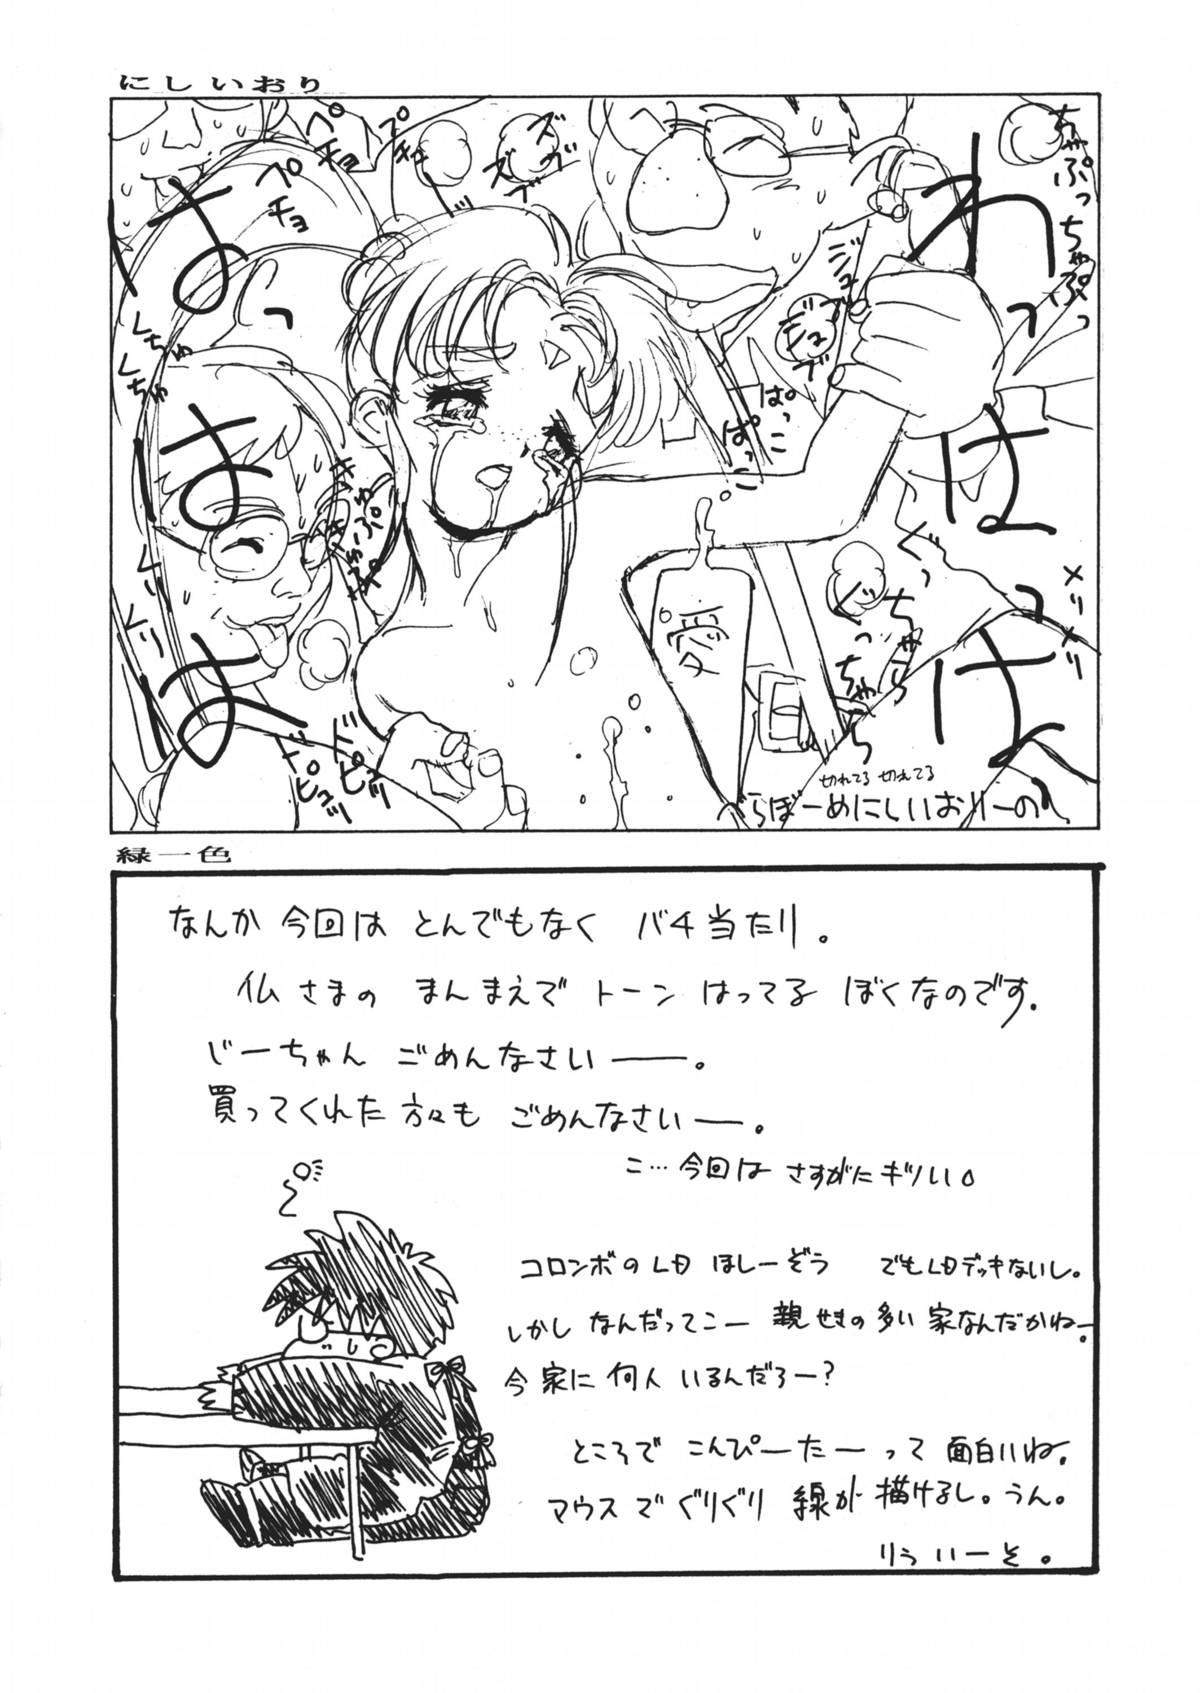 にしいおり
ちゃぷっちゃぷっ
わっはっはっ
ズブ
ズブ
ペチョ
ペチョ
ジュブ
ジュブ
ぱっこ
ぱっこ
はっはっは
くちゅ
くちゅ
くり
くり
メリメリ
ぐっちゃら
ぐっちゃら
愛
ドピュッ
ドピュッ
切れてる 切れてる
べらぼーめにしいおりーの
緑一色
なんか 今回は とんでもなく バチ当たり。
仏さまの まんまえで トーン はってる ぼくなのです.
じーちゃん ごめんなさい――。
買ってくれた方々も ごめんなさい―。
こ…今回は さすがにキツい。
コロンボのLD ほしーぞう でもLDデッキないし。
しかし なんだってこー 親せきの多い 家なんだかねー。
今 家に 何人 いるんだろー?
ところで こんぴーたーって 面白いね。
マウスで ぐりぐり 線が 描けるし。うん。
りぅ いーそ。